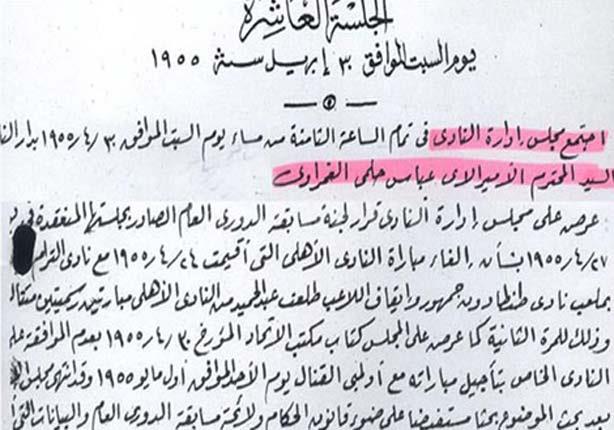 الجلسة العاشرة
يوم السبت الموافق ٣٠ إبريل سنة ١٩٥٥
اجتمع مجلس إدارة النادى فى تمام الساعة الثامنة من مساء يوم السبت الموافق ٣٠/٤/١٩٥٥ بدار النا
السيد المحترم الأميرالاى عباس حلمى الغمراوى
عرض على مجلس إدارة النادى قرار لجنة مسابقة الدورى العام الصادر بجلستها المنعقدة فى
٢٧/٤/١٩٥٥ بشأن إلغاء مباراة النادى الأهلى التى أقيمت ٢٤/٤/١٩٥٥ مع نادى الترام
بملعب نادى طنطا دون جمهور وإيقاف اللاعب طلعت عبد الحميد من النادى الأهلى مبارتين رسميتين متتا
وذلك للمرة الثانية كما عرض على المجلس كتاب مكتب الاتحاد المؤرخ ٣٠/٤/١٩٥٥ بعدم الموافقة على
النادى الخاص بتأجيل مباراته مع أولمبى القنال يوم الأحد الموافق أول مايو ١٩٥٥ وقد انتهى مجلس
بعد بحث الموضوع بحثا مستفيضا على ضوء قانون الحكام ولائحة مسابقة الدورى العام والبيانات التى